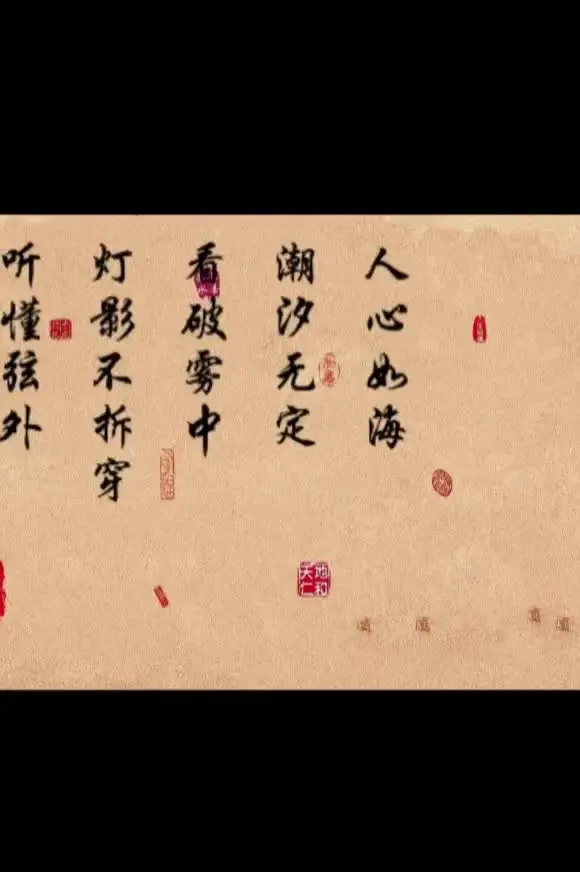 人心如海
潮汐无定
看破雾中
灯影不拆穿
听懂弦外